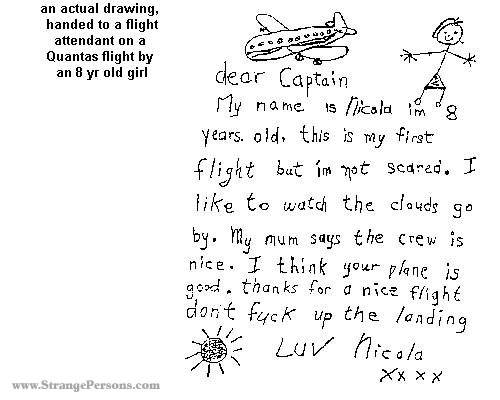 an actual drawing,
handed to a flight
attendant on a
Quantas flight by
an 8 yr old girl
dear Captain
My name is Nicola im 8
years. old, this is my first
flight but im not scared. I
like to watch the clouds go
by. My mum says the crew is
nice. I think your plane is
good. thanks for a nice flight
don't fuck up the landing
LUV Nicola
xxxx
www.StrangePersons.com